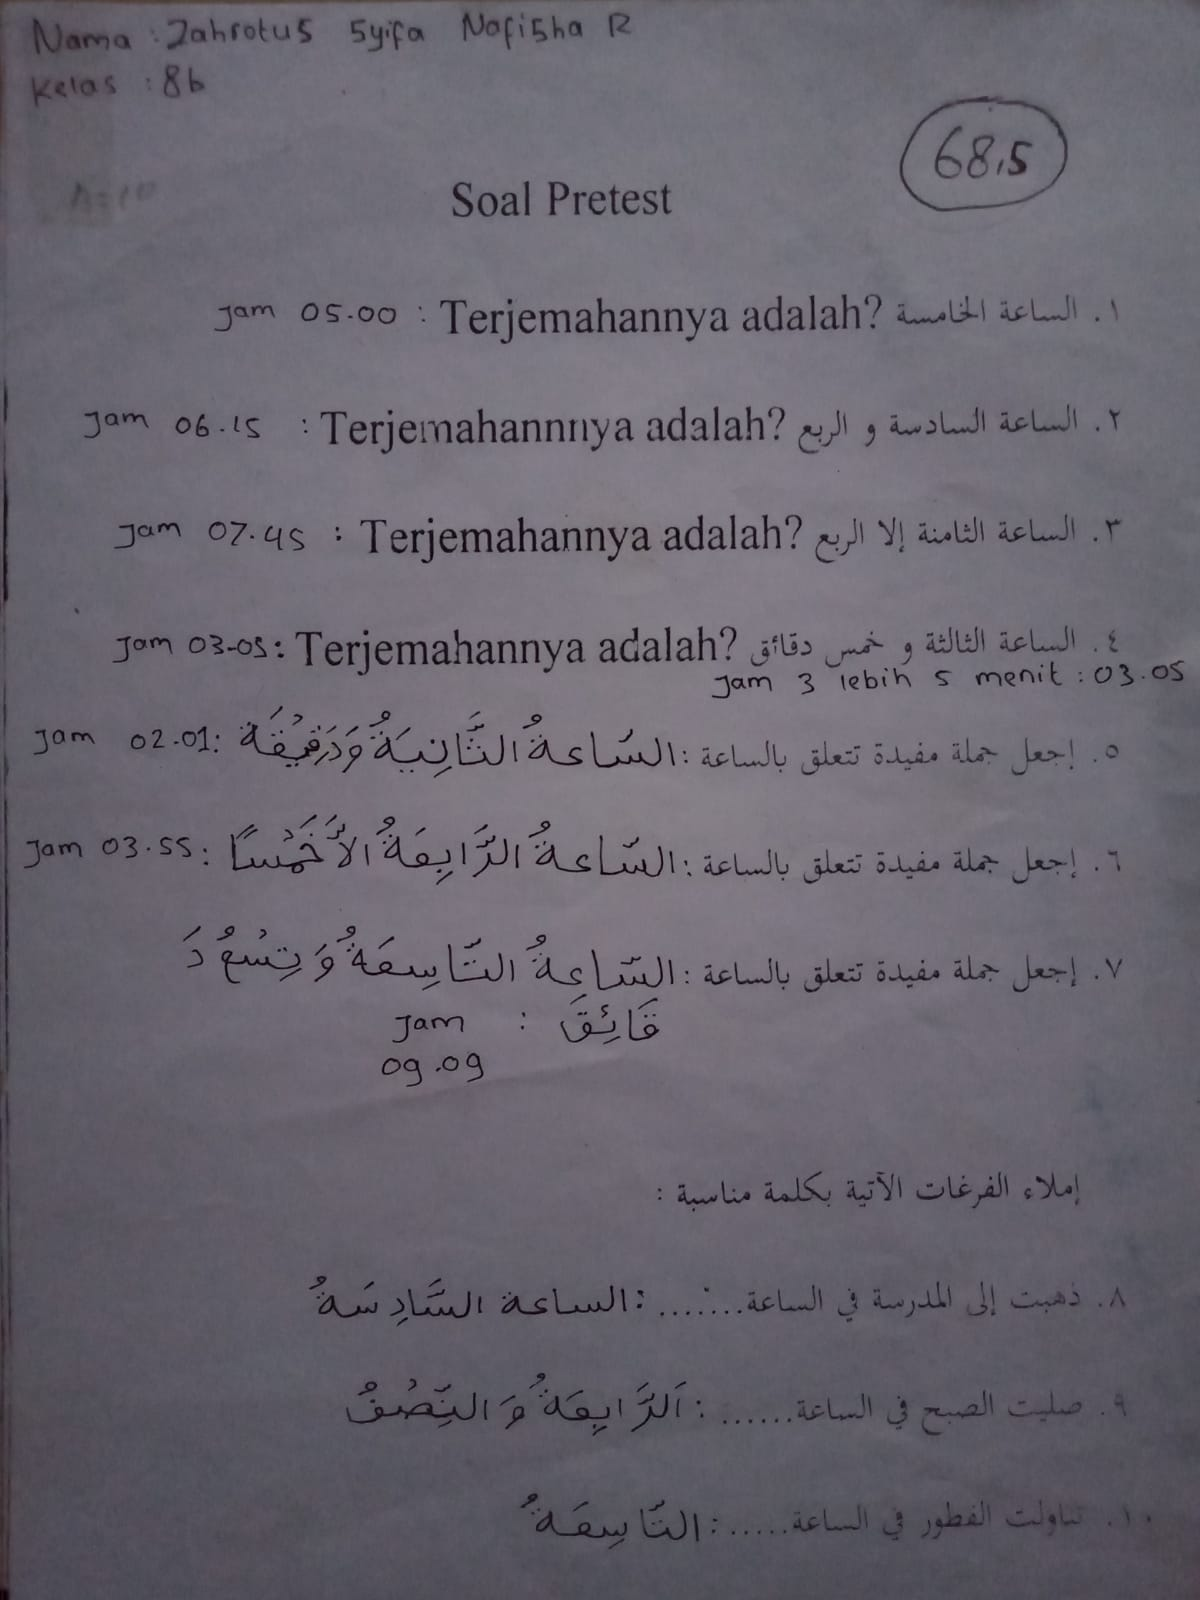 Nama : Zahrotus Syifa Nafisha R
Kelas : 8b
68,5
Soal Pretest
١. الساعة الخامسة Terjemahannya adalah? : Jam 05.00
٢. الساعة السادسة و الربع Terjemahannnya adalah? : Jam 06.15
٣. الساعة الثامنة إلا الربع Terjemahannya adalah? : Jam 07.45
٤. الساعة الثالثة و خمس دقائق Terjemahannya adalah? : Jam 03-05
Jam 3 lebih 5 menit : 03.05
٥. إجعل جملة مفيدة تتعلق بالساعة : السَّاعةُ الثَّانِيَةُ وَدَقِيْقَة : Jam 02.01
٦. إجعل جملة مفيدة تتعلق بالساعة : السَّاعةُ الرَّابِعَةُ الاَّخَمْسًا : Jam 03.55
٧. إجعل جملة مفيدة تتعلق بالساعة : السَّاعِةُ التَّاسِعَةُ وَتِسْعُ دَ
قَائِقَ : Jam
09.09
إملاء الفرغات الآتية بكلمة مناسبة :
٨. ذهبت إلى المدرسة في الساعة....... : الساعة السَّادِسَةُ
٩. صليت الصبح في الساعة...... : اَلرَّابِعَةُ وَ النِّصْفُ
١٠. تناولت الفطور في الساعة..... : التَّاسِعَةُ